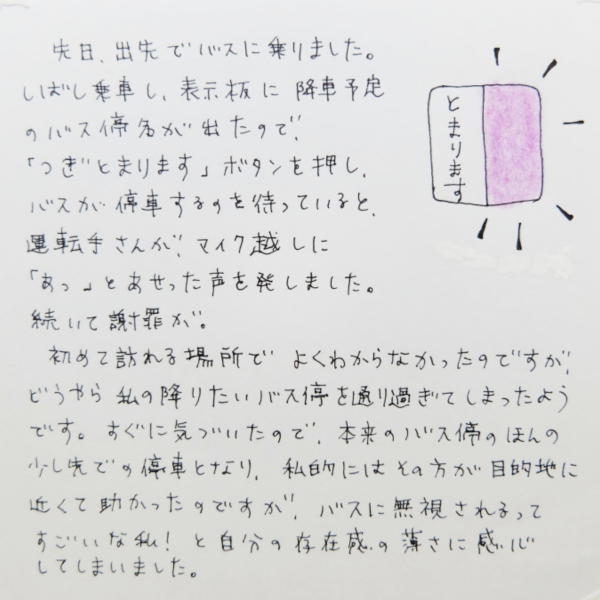 先日、出先でバスに乗りました。
しばし乗車し、表示板に降車予定
のバス停名が出たので、
「つぎとまります」ボタンを押し、
バスが停車するのを待っていると、
運転手さんが、マイク越しに
「あっ」とあせった声を発しました。
続いて謝罪が。
初めて訪れる場所でよくわからなかったのですが、
どうやら私の降りたいバス停を通り過ぎてしまったよう
です。すぐに気づいたので、本来のバス停のほんの
少し先での停車となり、私的にはその方が目的地に
近くて助かったのですが、バスに無視されるって
すごいな私!と自分の存在感の薄さに感心
してしまいました。
とまります